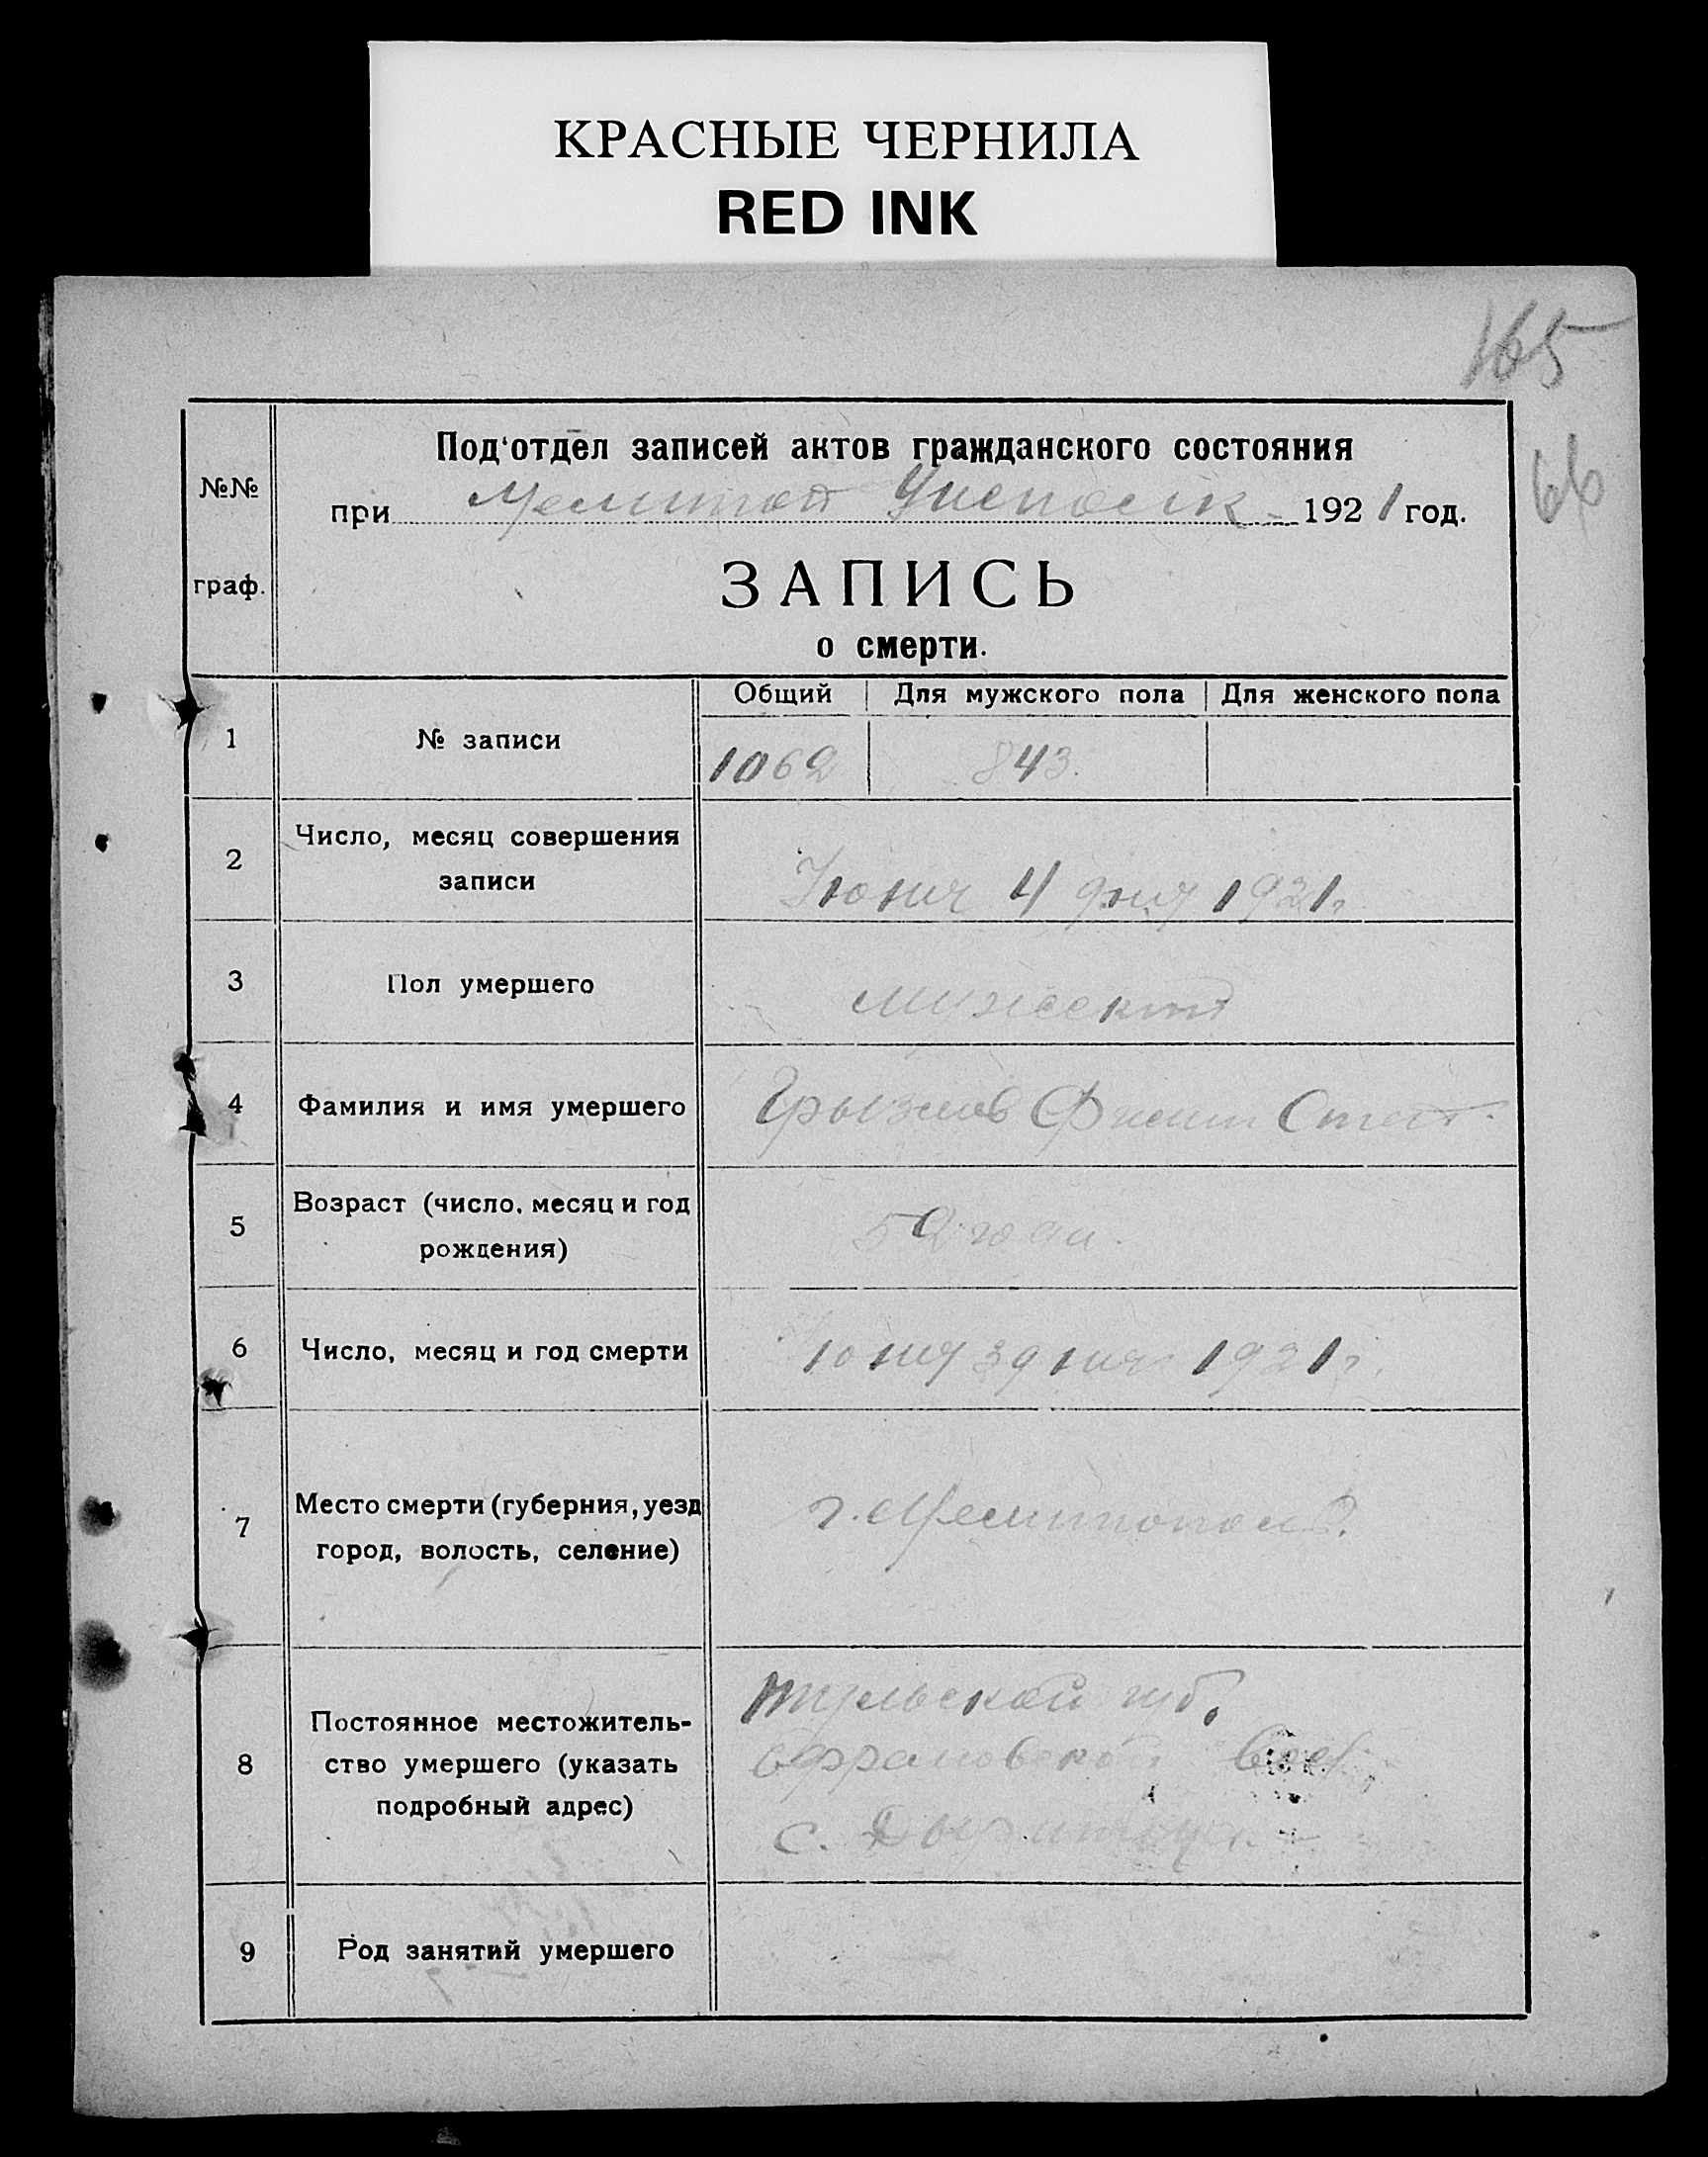 КРАСНЫЕ ЧЕРНИЛА
RED INK
165
66
Под'отдел записей актов гражданского состояния
№№
при Мелитоп Уисполк- 1921 год.
граф.
ЗАПИСЬ
о смерти.
Общий Для мужского пола Для женского пола
1 № записи 1062 843.
2 Число, месяц совершения
записи
Июня 4 дня 1921г.
3 Пол умершего мужской
4 Фамилия и имя умершего
5 Возраст (число, месяц и год
рождения)
52 года.
6 Число, месяц и год смерти Июня 3 дня 1921г.
7 Место смерти (губерния, уезд
город, волость, селение)
г. Мелитополь.
8 Постоянное местожитель-
ство умершего (указать
подробный адрес)
Тульской губ.
с.
9 Род занятий умершего